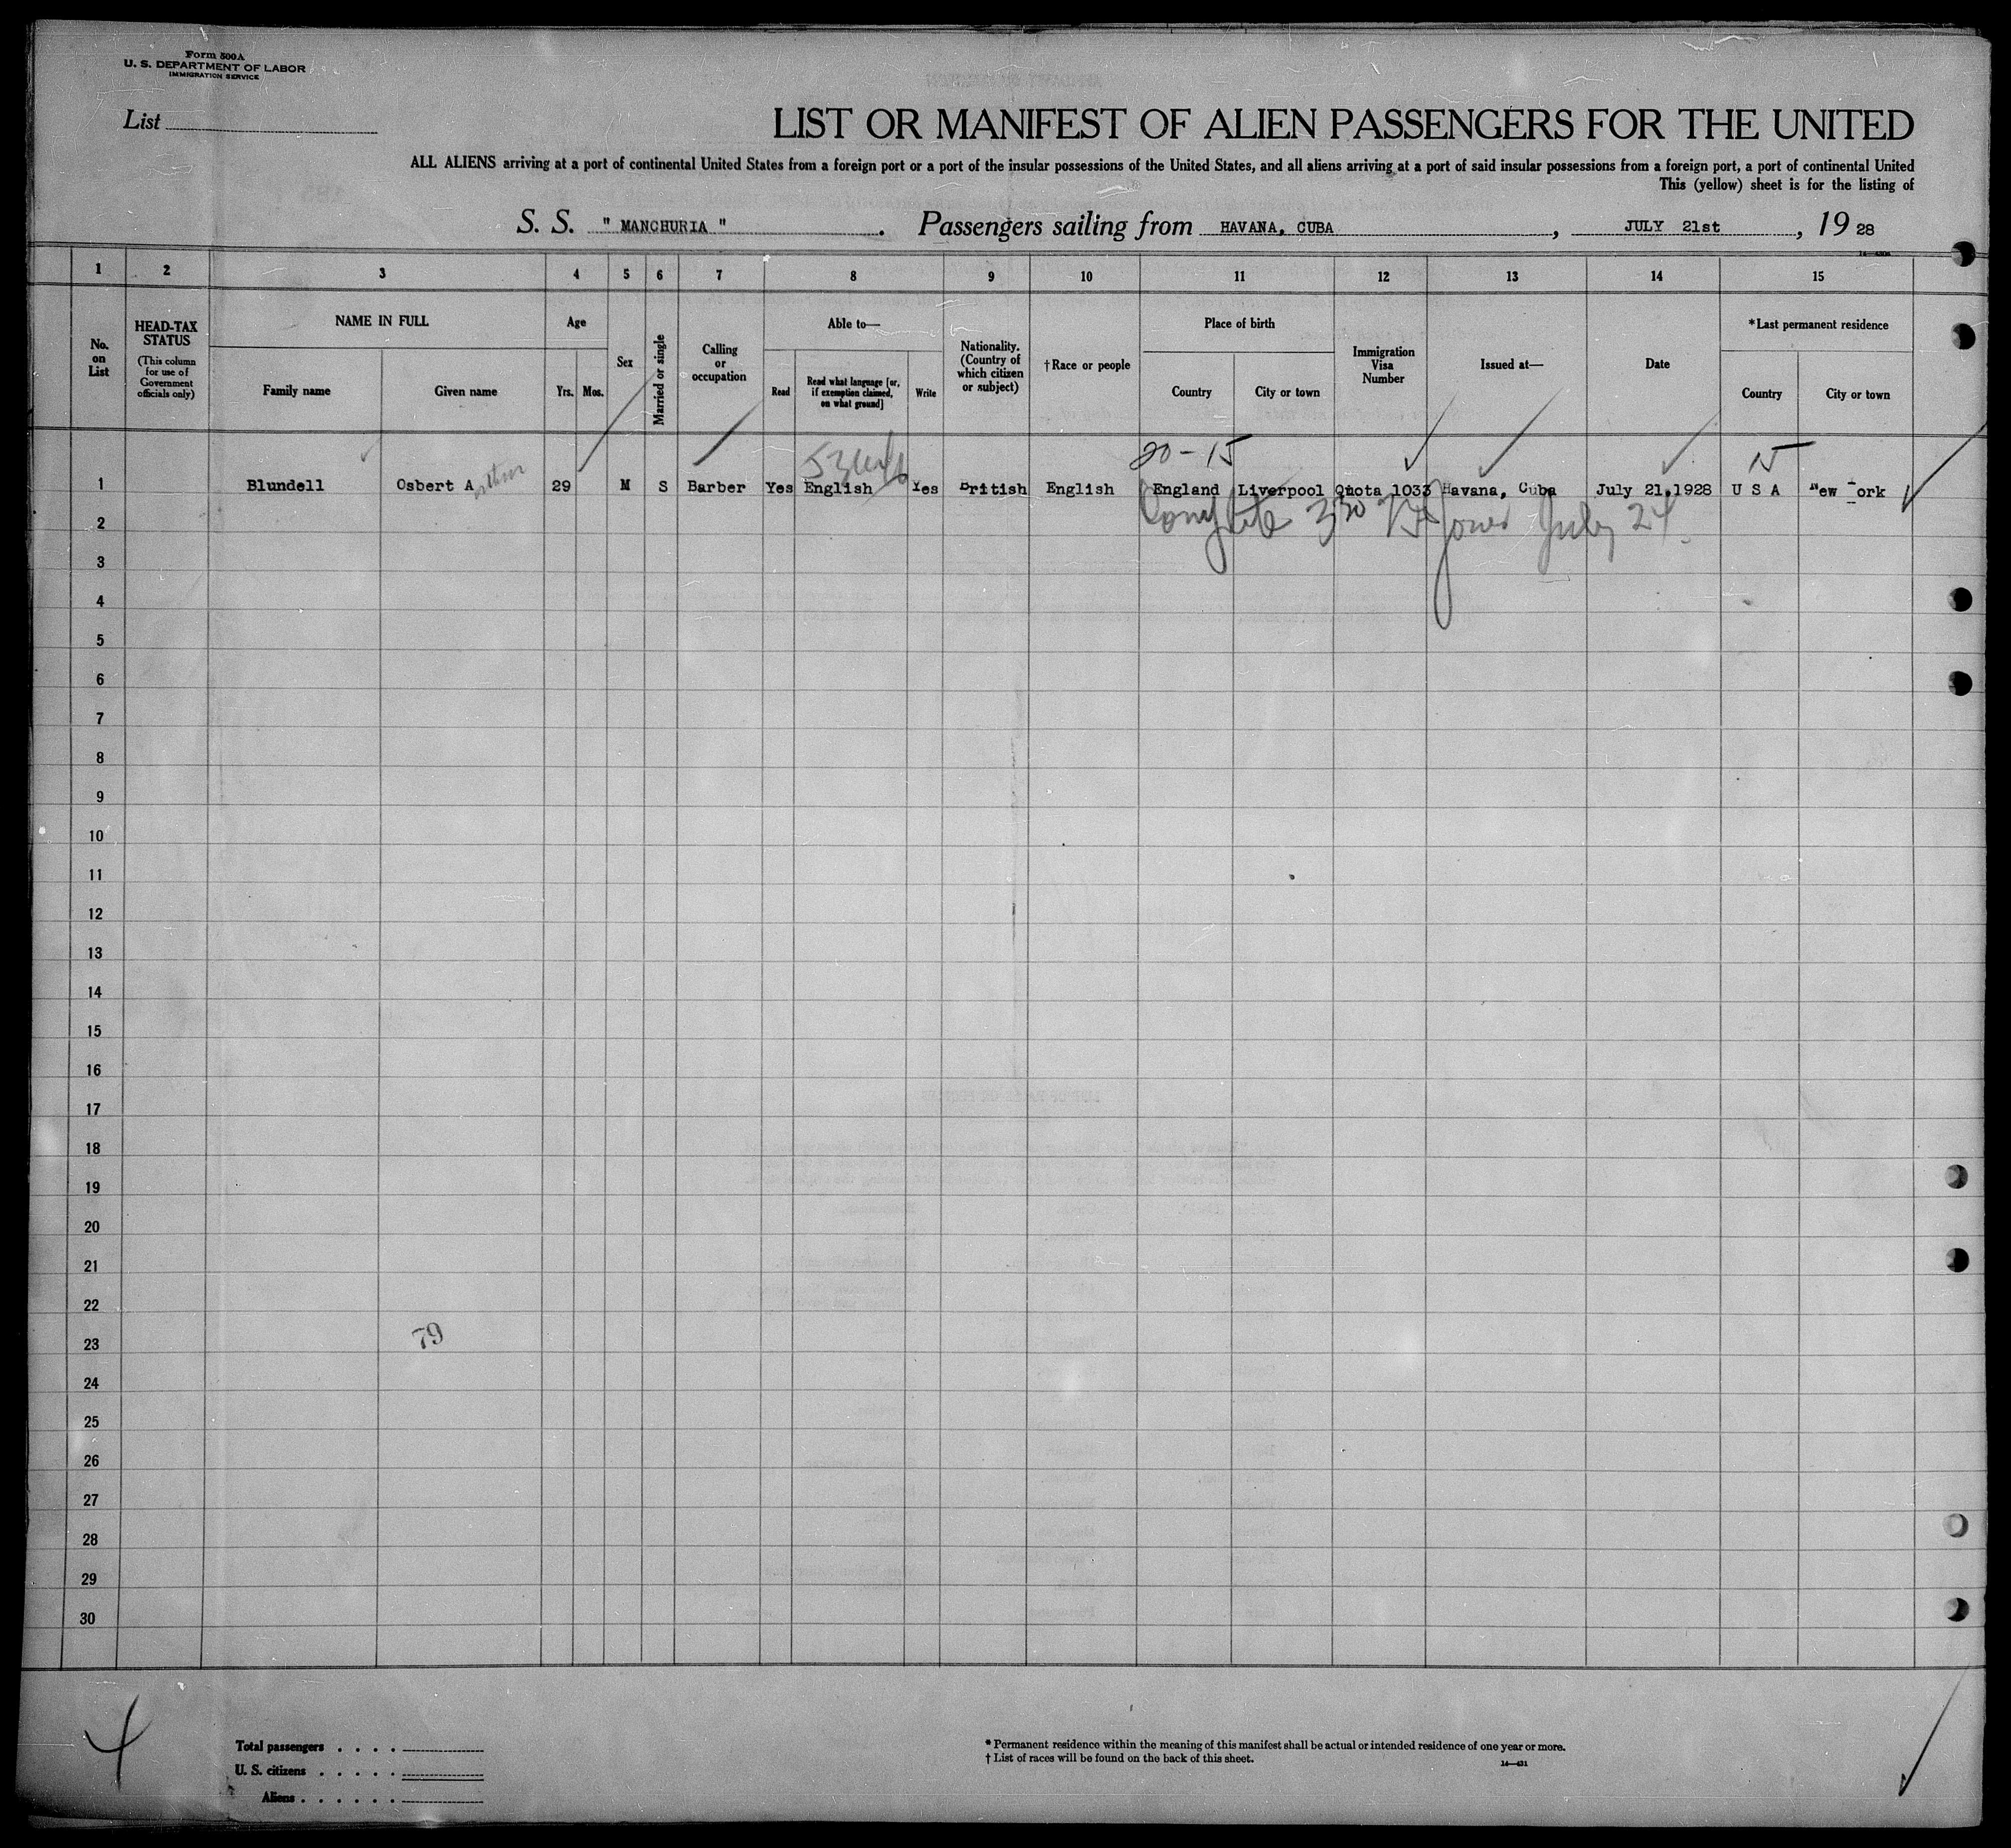 Form 500A
U. S. DEPARTMENT OF LABOR
IMMIGRATION SERVICE
List
LIST OR MANIFEST OF ALIEN PASSENGERS FOR THE UNITED
ALL ALIENS arriving at a port of continental United States from a foreign port or a port of the insular possessions of the United States, and all aliens arriving at a port of said insular possessions from a foreign port, a port of continental United
This (yellow) sheet is for the listing of
S. S. " MANCHURIA " . Passengers sailing from HAVANA, CUBA , JULY 21st , 19 28
1 2 3 4 5 6 7 8 9 10 11 12 13 14 15
No. on List
HEAD-TAX STATUS
(This column for use of Government officials only)
NAME IN FULL
Family name
Given name
Age
Yrs.
Mos.
Sex
Married or single
Calling or occupation
Able to—
Read
Read what language [or, if exemption claimed, on what ground]
Write
Nationality. (Country of which citizen or subject)
†Race or people
Place of birth
Country
City or town
Immigration Visa Number
Issued at—
Date
*Last permanent residence
Country
City or town
20-15
15
1 Blundell Osbert A rthur 29 M S Barber Yes English Yes British English England Liverpool Quota 1033 Havana, Cuba July 21,1928 U S A New York
Jones July 24
2
3
4
5
6
7
8
9
10
11
12
13
14
15
16
17
18
19
20
21
22
23
79
24
25
26
27
28
29
30
4
Total passengers . . . .
U. S. citizens . . . . .
Aliens . . . . . .
* Permanent residence within the meaning of this manifest shall be actual or intended residence of one year or more.
† List of races will be found on the back of this sheet.
14—431